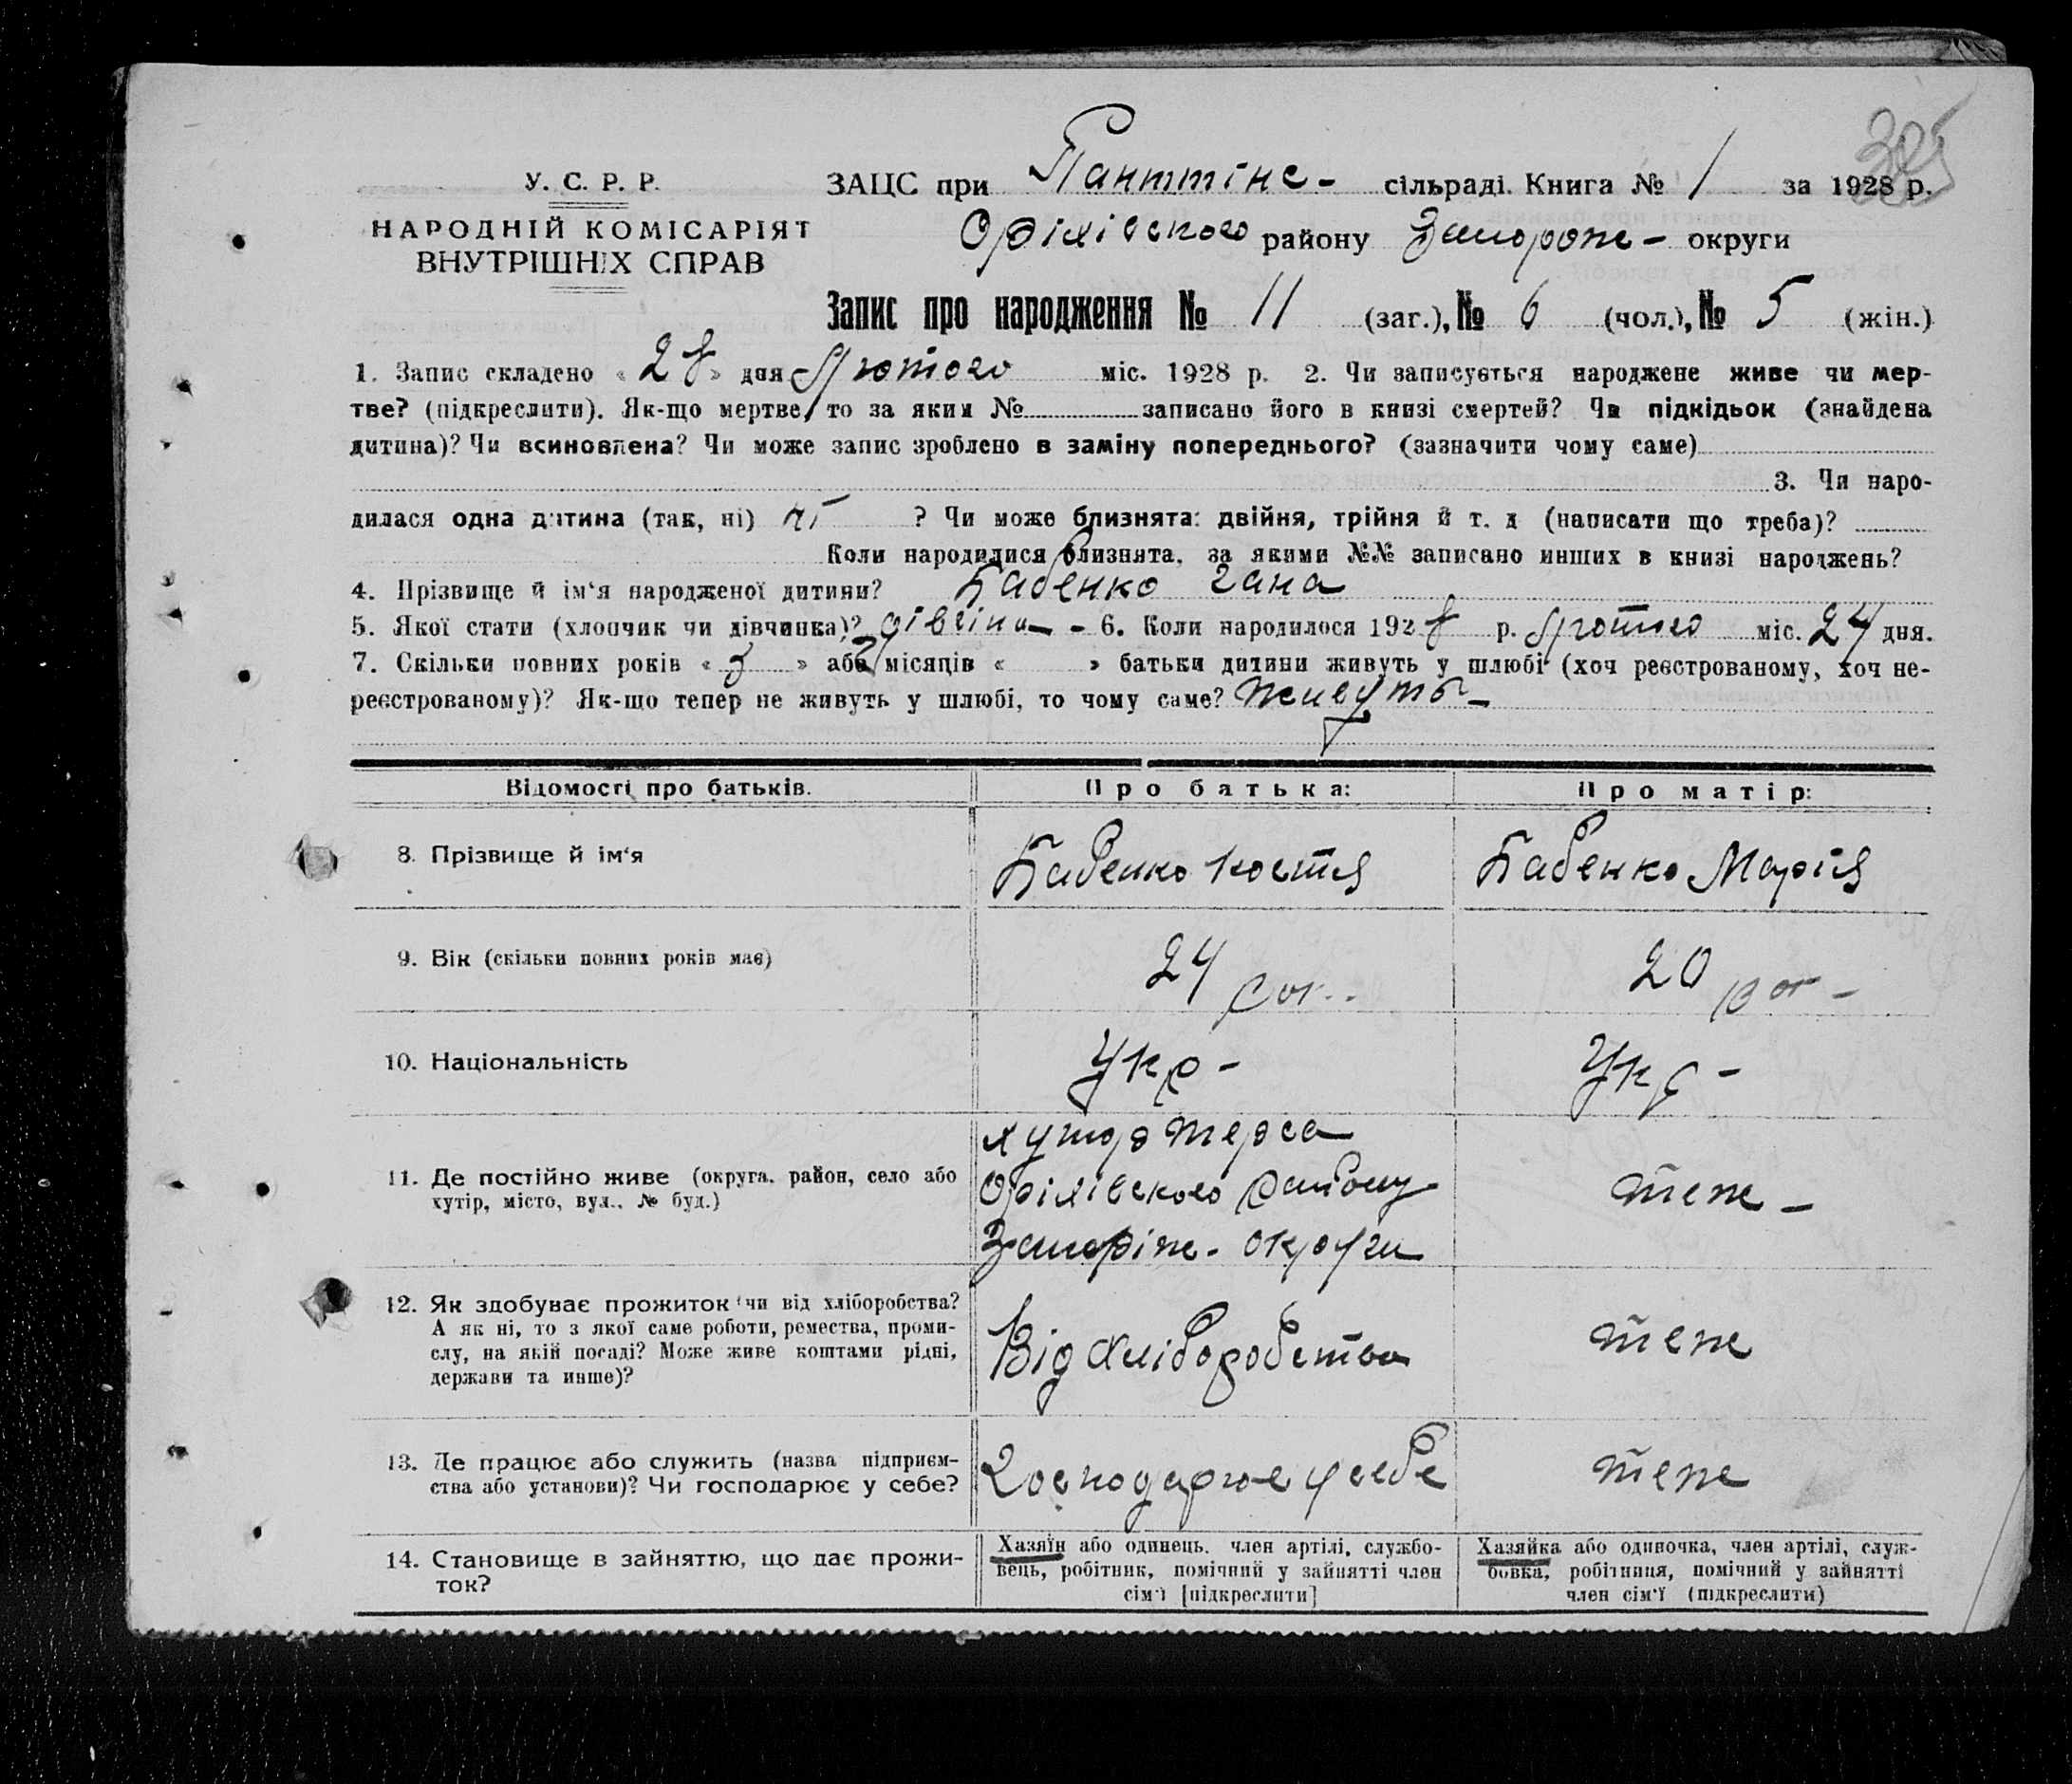 325
У. С. Р. Р.
НАРОДНІЙ КОМІСАРІЯТ
ВНУТРІШНІХ СПРАВ
ЗАЦС при сільраді. Книга № 1 за 1928 р.
Оріхівського району Запорож- округи
Запис про народження № 11 (заг.), № 6 (чол.), № 5 (жін.)
1. Запис складено « 28 » дня Лютого міс. 1928 р. 2. Чи записується народжене живе чи мер-
тве? (підкреслити). Як-що мертве, то за яким № записано його в книзі смертей? Чи підкідьок (знайдена
дитина)? Чи всиновлена? Чи може запис зроблено в заміну попереднього? (зазначити чому саме)
3. Чи наро-
дилася одна дитина (так, ні) ні ? Чи може близнята: двійня, трійня й т. д (написати що треба)?
Коли народилися близнята, за якими №№ записано инших в книзі народжень?
4. Прізвище й ім‘я народженої дитини? Бабенко Гана
5. Якої стати (хлопчик чи дівчинка)? дівчина - 6. Коли народилося 1928 р. Лютого міс. 24 дня.
7. Скільки повних років « » або місяців « » батьки дитини живуть у шлюбі (хоч реєстрованому, хоч не-
реєстрованому)? Як-що тепер не живуть у шлюбі, то чому саме? живуть -
Відомості про батьків. Про батька: Про матір:
8. Прізвище й ім‘я Бабенко Костя Бабенко Марія
9. Вік (скільки повних років має) 24 рок.. 20 рок -
10. Національність Укр - Укр -
11. Де постійно живе (округа, район, село або
хутір, місто, вул., № буд.)
хутор Терса
Оріхівского району
Запоріж. округи
теж -
12. Як здобуває прожиток чи від хліборобства?
А як ні, то з якої саме роботи, ремества, проми-
слу, на якій посаді? Може живе коштами рідні,
держави та инше)?
Від Хліборобства
теж
13. Де працює або служить (назва підприєм-
ства або установи)? Чи господарює у себе?
Господарює у себе
теж
14. Становище в зайняттю, що дає прожи-
ток?
Хазяїн або одинець, член артілі, службо-
вець, робітник, помічний у зайнятті член
сім‘ї [підкреслити]
Хазяйка або одиночка, член артілі, служ-
бовка, робітниця, помічний у зайнятті
член сім‘ї (підкреслити)